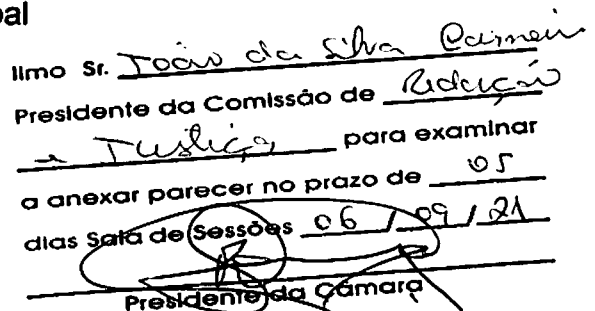 pal
Ilmo Sr. João da Silva Carneiro
Presidente da Comissão de Redação
e Justiça para examinar
a anexar parecer no prazo de 05
dias Sala de Sessões 06 / 09 / 21
Presidente da Câmara